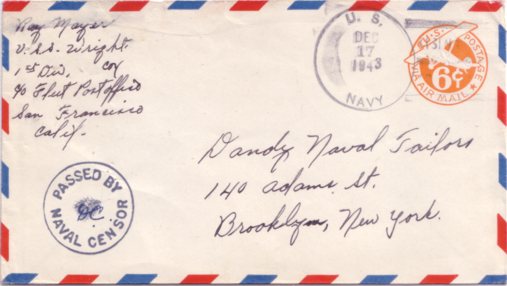 Ray Mayer
U.S.S. Wright
1st Div. Cox
c/o Fleet Post office
San Francisco
Calif.
U. S.
DEC
17
1943
NAVY
U.S. POSTAGE
6¢
VIA AIR MAIL
Dandy Naval Tailors
140 Adams. St.
Brooklyn, New York.
PASSED BY
NAVAL CENSOR